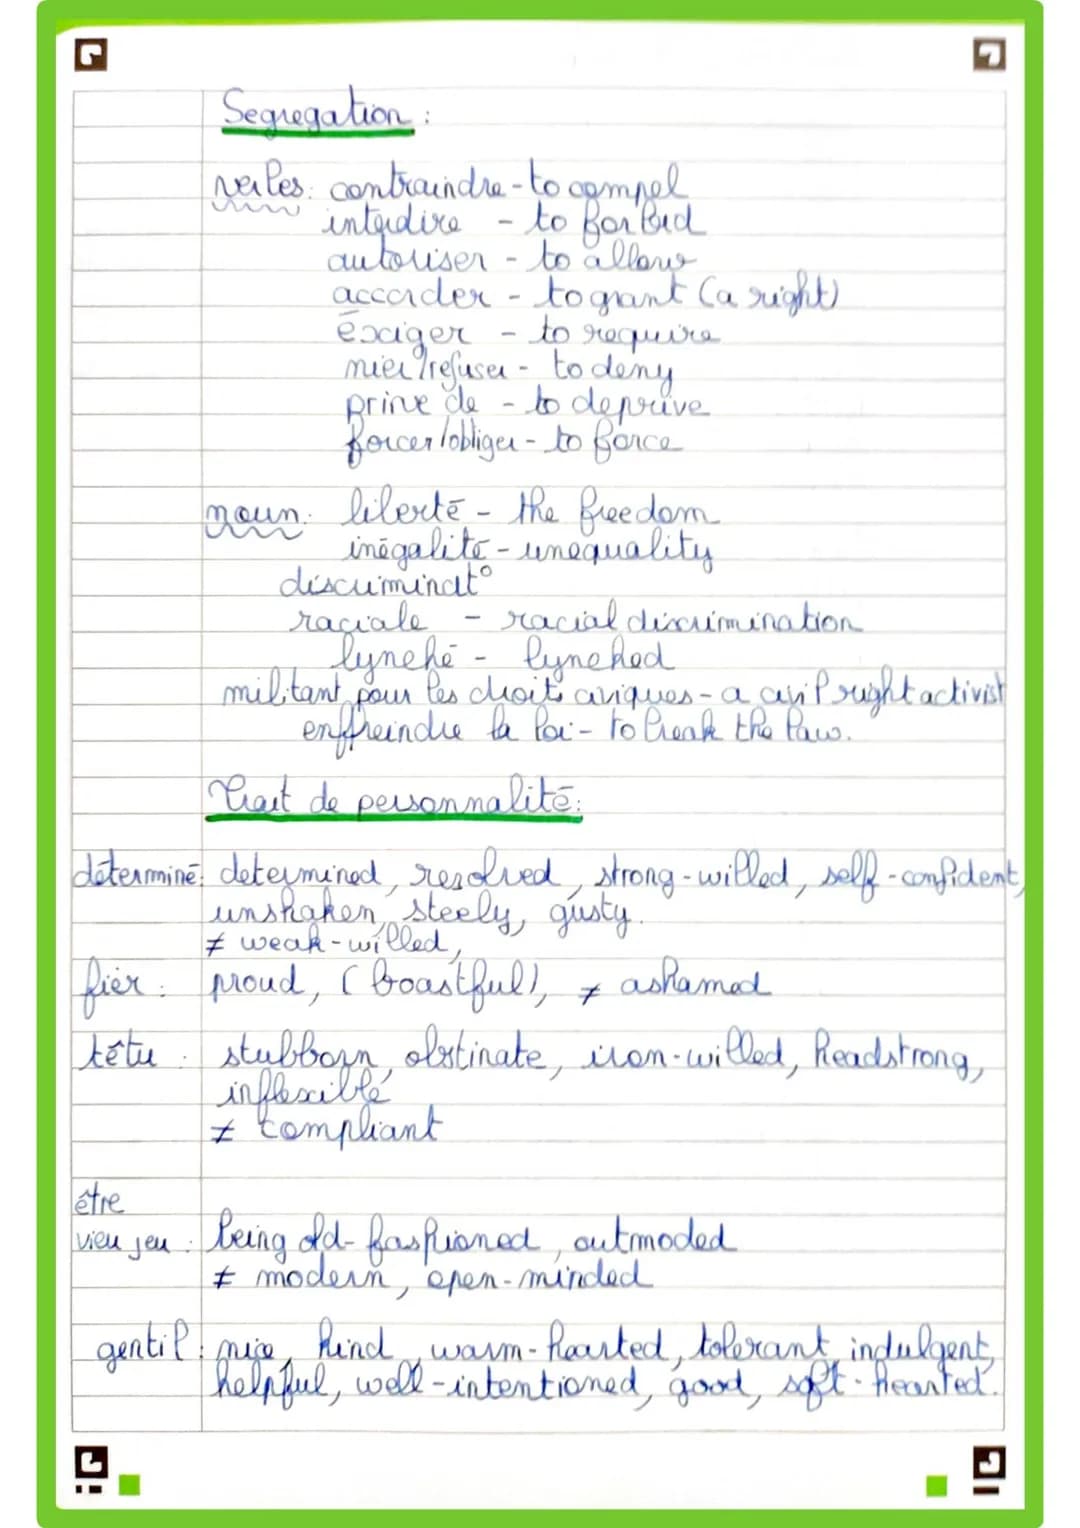 Segregation :
verbes: contraindre - to compel
interdire - to forbid
autoriser - to allow
accorder - to grant (a right)
éxiger - to require
nier/refuser - to deny
prive de - to deprive
forcer/obliger - to force
noun: liberté - the freedom
inégalité - unequality
discriminat°
raciale - racial discrimination
lynché - lynched
militant pour les droits civiques - a civil right activist
enffreindre la loi - to break the law.
Trait de personnalité:
déterminé: determined, resolved, strong-willed, self-confident,
unshaken, steely, gusty.
≠ weak-willed,
fier: proud, (boastful), ≠ ashamed
têtu: stubborn, obstinate, iron-willed, headstrong,
inflexible
≠ compliant
être
vieu jeu: being old-fashioned, outmoded
≠ modern, open-minded
gentil: nice, kind, warm-hearted, tolerant, indulgent,
helpful, well-intentioned, good, soft-hearted.